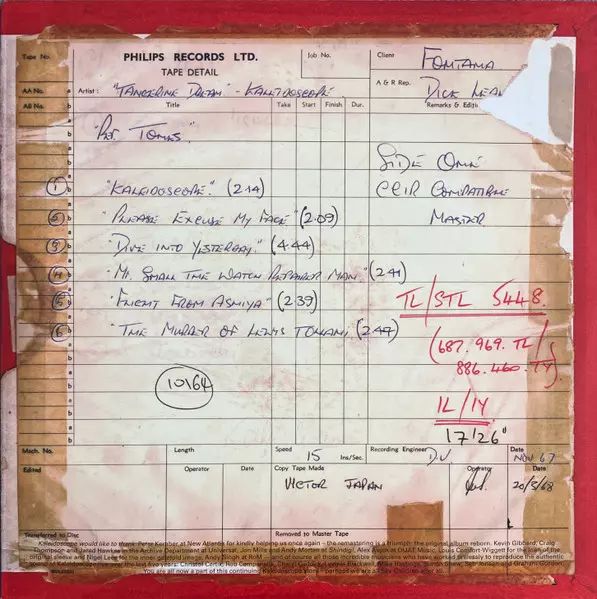 Tape No.
PHILIPS RECORDS LTD.
TAPE DETAIL
Job No.
Client
FONTANA
AA No. a
Artist: "TANGERINE DREAM" - KALEIDOSCOPE
A & R Rep.
DICK LEA
AB No. b
Title Take Start Finish Dur. Remarks & Editi
"REF. TONES".
SIDE ONE
CCIR COMPATIBLE
MASTER
① "KALEIDOSCOPE." (2.14)
② "PLEASE EXCUSE MY FACE" (2.09)
③ "DIVE INTO YESTERDAY." (4.44)
④ "MR. SMALL THE WATCH REPAIRER MAN." (2.41)
⑤ "FLIGHT FROM ASHIYA" (2.39)
⑥ "THE MURDER OF LEWIS TOLLANI, (2.44)
TL/STL 5448.
(687.969. TL/
886.460. TY).
1L/1Y
17'26"
10164
Mach. No. Length Speed 15 Ins/Sec. Recording Engineer DV Date NOV 67
Edited Operator Date Copy Tape Made Operator Date
VICTOR JAPAN 20/5/68
Transferred to Disc Removed to Master Tape
Kaleidoscope would like to thank: Peter Kember at New Atlantis for kindly helping us once again - the remastering is a triumph: the original album reborn. Kevin Gibbard, Craig
Thompson and Jared Hawkes in the Archive Department at Universal, Jon Mills and Andy Morten at Shindig!, Alex Ayon at OUAT Music, Louis Comfort-Wiggett for the loan of the
original sleeve and Nigel Lees for the inner gatefold image, Andy Singh at RoM — and of course all those incredible musicians who have worked tirelessly to reproduce the authentic
You are all now a part of this continuing Kaleidoscope story - perhaps we are all Sky Children after all...